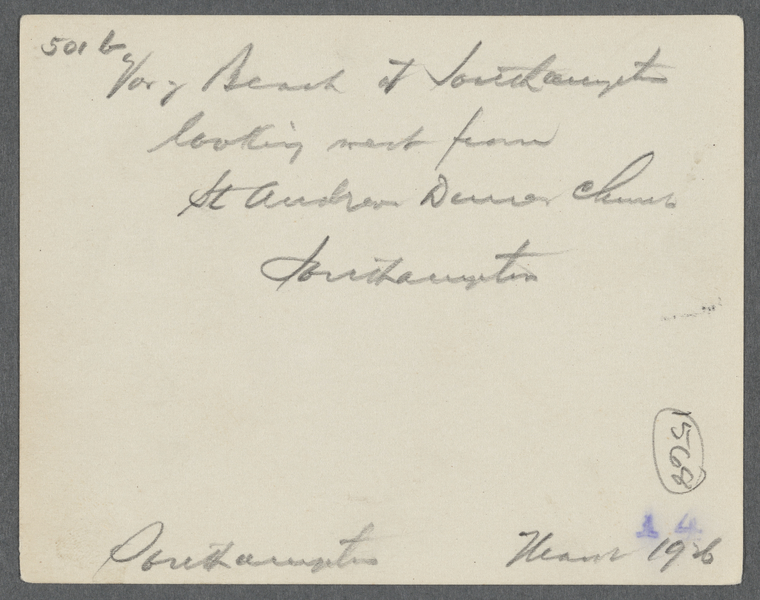 501 b
Beach at Southampton
looking west from
St Andrews Dunes Church
Southampton
1568
14
Southampton 1926